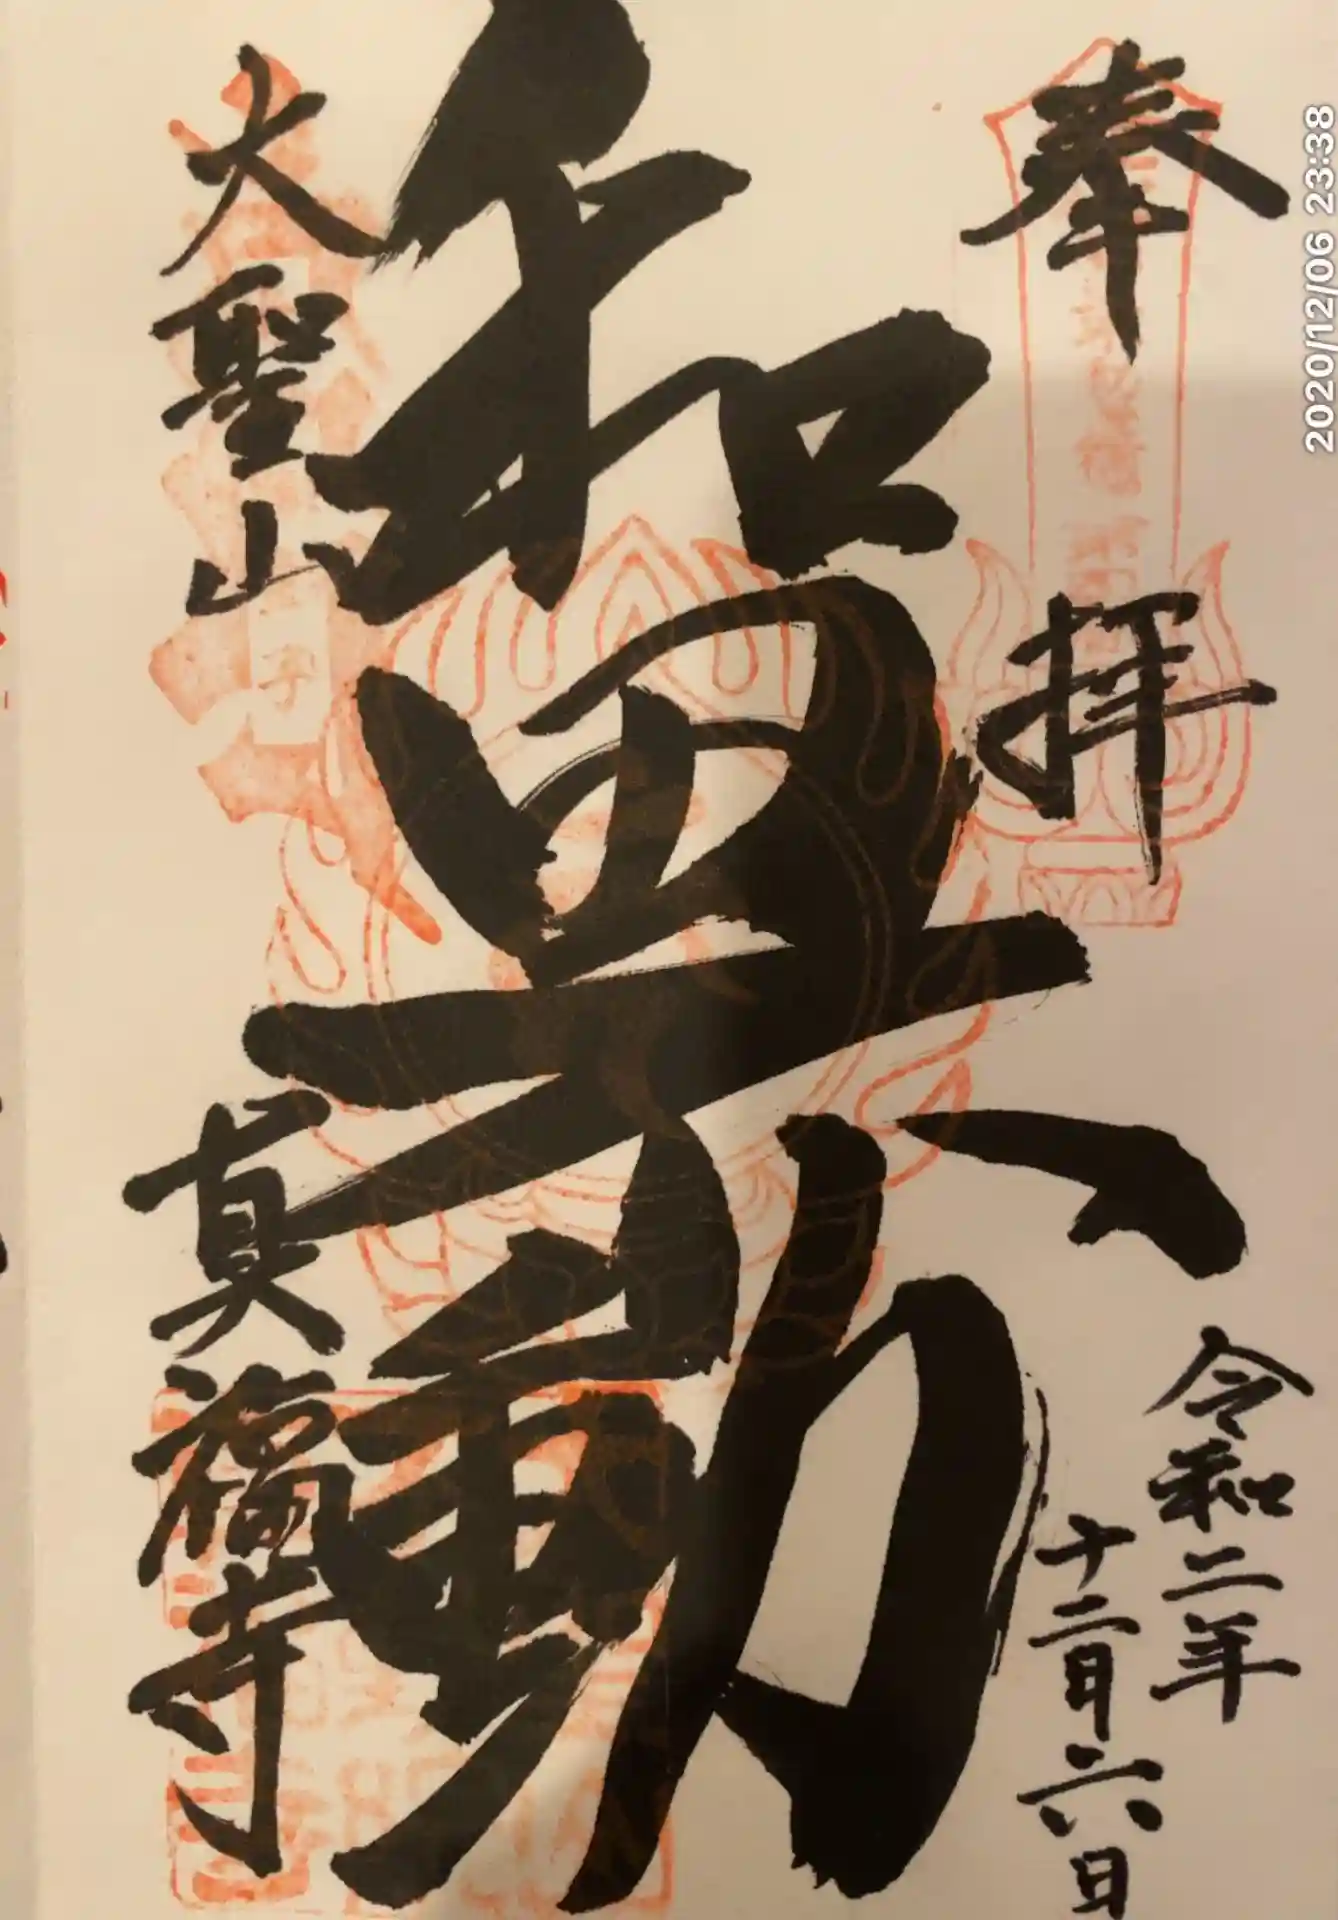 奉拝
令和二年
十二月六日
和田不動
大聖山
真福寺
2020/12/06 23:38